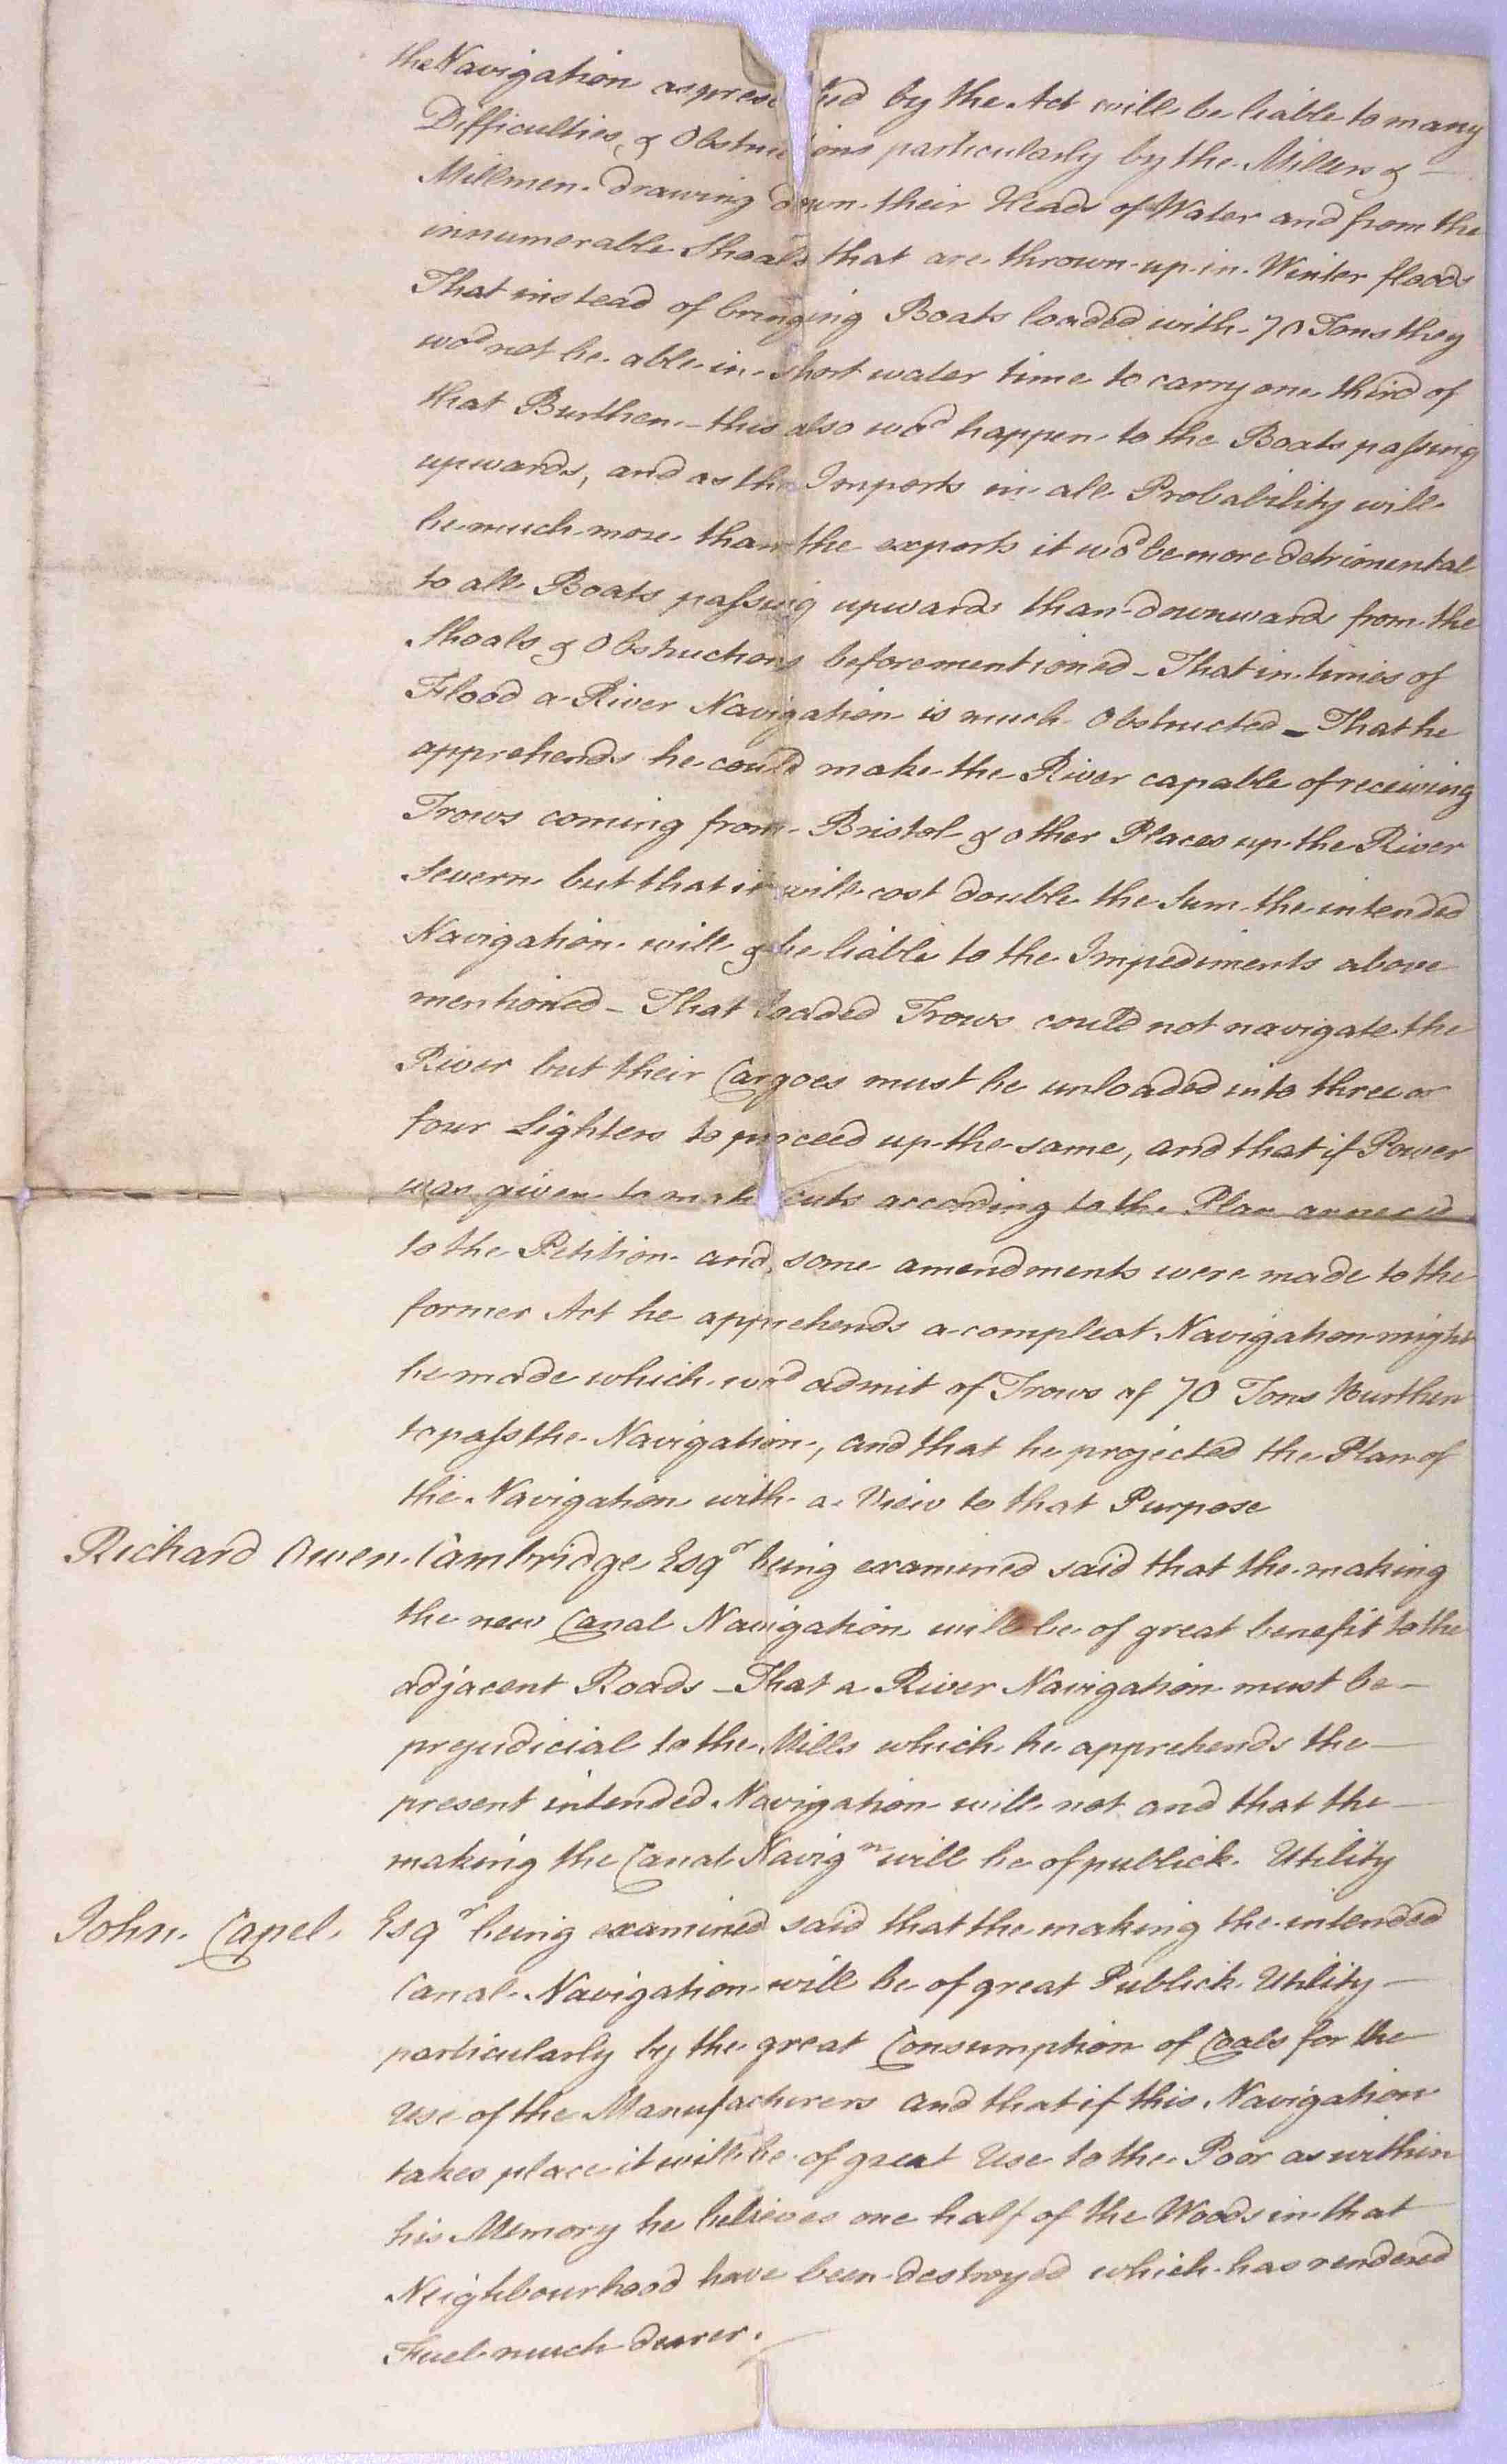 the Navigation as prescribed by the Act will be liable to many
Difficulties, & Obstructions particularly by the Millers &
Millmen drawing down their Heads of Water and from the
innumerable Shoals that are thrown up in Winter floods
That instead of bringing Boats loaded with 70 Tons they
wod not be able in short water time to carry one third of
that Burthen - this also wod happen to the Boats passing
upwards, and as the Imports in all Probability will
be much more than the exports it wod be more detrimental
to all Boats passing upwards than downwards from the
Shoals & Obstructions beforementioned - That in times of
Flood a River Navigation is much Obstructed - That he
apprehends he could make the River capable of receiving
Trows coming from Bristol & other Places up the River
Severn but that it will cost double the Sum the intended
Navigation will & be liable to the Impediments above
mentioned - That loaded Trows could not navigate the
River but their Cargoes must be unloaded into three or
four Lighters to proceed up the same, and that if Power
was given to make cuts according to the Plan annexed
to the Petition and some amendments were made to the
former Act he apprehends a compleat Navigation might
be made which wod admit of Trows of 70 Tons Burthen
to pass the Navigation, and that he projected the Plan of
the Navigation with a View to that Purpose
Richard Owen Cambridge Esqr being examined said that the making
the new Canal Navigation will be of great benefit to the
adjacent Roads - That a River Navigation must be
prejudicial to the Mills which he apprehends the
present intended Navigation will not and that the
making the Canal Navign will be of publick Utility
John Capel Esqr being examined said that the making the intended
Canal Navigation will be of great Publick Utility
particularly by the great Consumption of Coals for the
Use of the Manufacturers and that if this Navigation
takes place it will be of great Use to the Poor as within
his Memory he believes one half of the Woods in that
Neighbourhood have been destroyed which has rendered
Fuel much dearer.